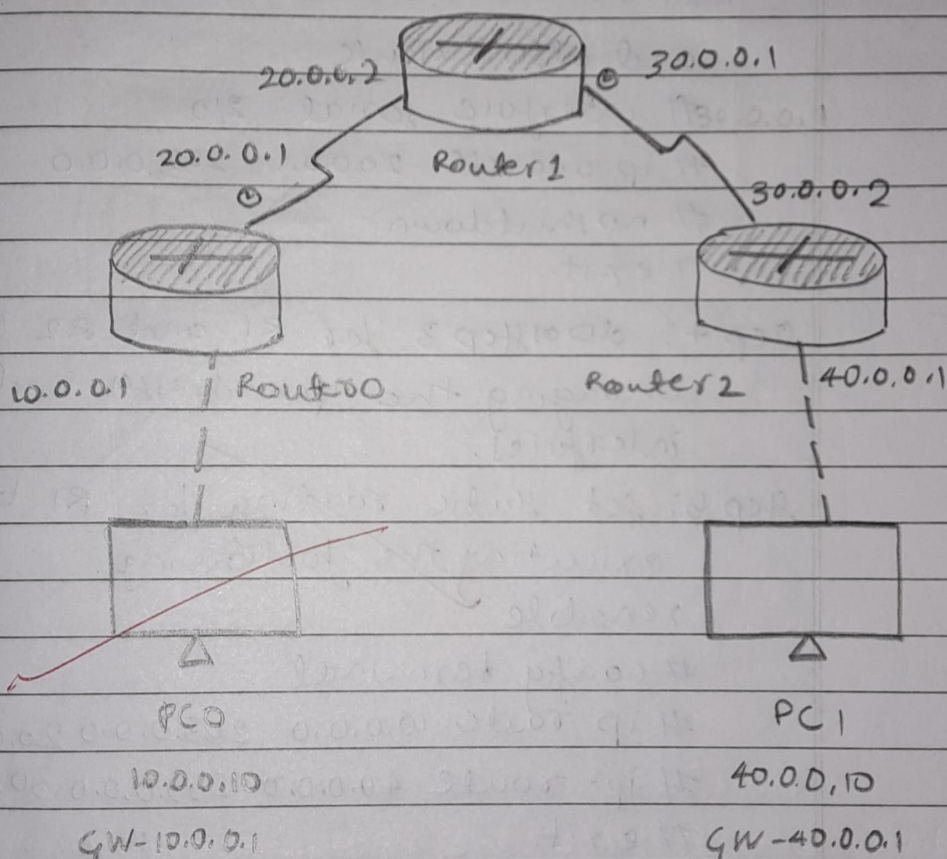 20.0.0.2
30.0.0.1
20.0.0.1
Router1
30.0.0.2
10.0.0.1
Router0
Router2
40.0.0.1
PC0
PC1
10.0.0.10
40.0.0.10
GW-10.0.0.1
GW-40.0.0.1